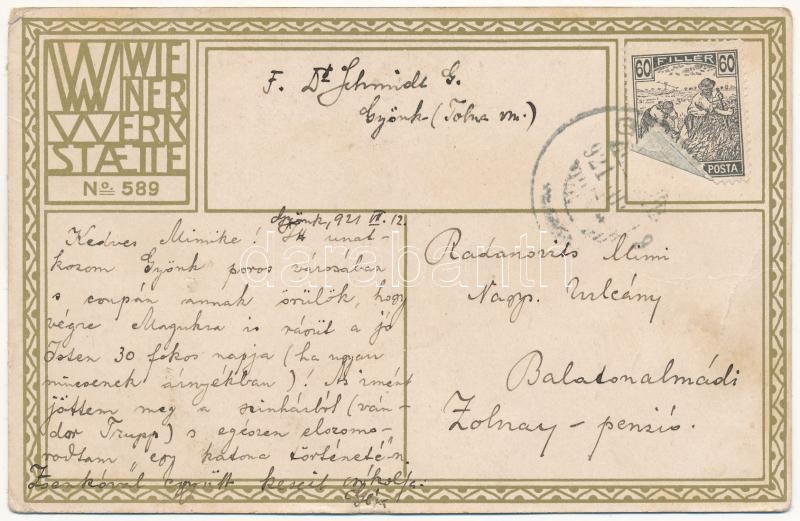 WIENER WERKSTAETTE
No. 589
F. Dr Schmidt G.
Gyönk (Tolna vm.)
60 FILLÉR 60
POSTA
921
Gyönk, 921 VII. 12.
Kedves Mimike! Itt unat-
kozom Gyönk poros városában
s csupán annak örülök, hogy
végre Magukra is rásüt a jó
Isten 30 fokos napja (ha ugyan
nincsenek árnyékban)! Az imént
jöttem meg a szinházból (ván-
dor Trupp) s egészen elszomo-
rodtam "egy katona történeté"n.
együtt kezeit csókolja:
Géza
Radanovits Mimi
Nagys.
Balatonalmádi
Zolnay-penzió.
darabanth